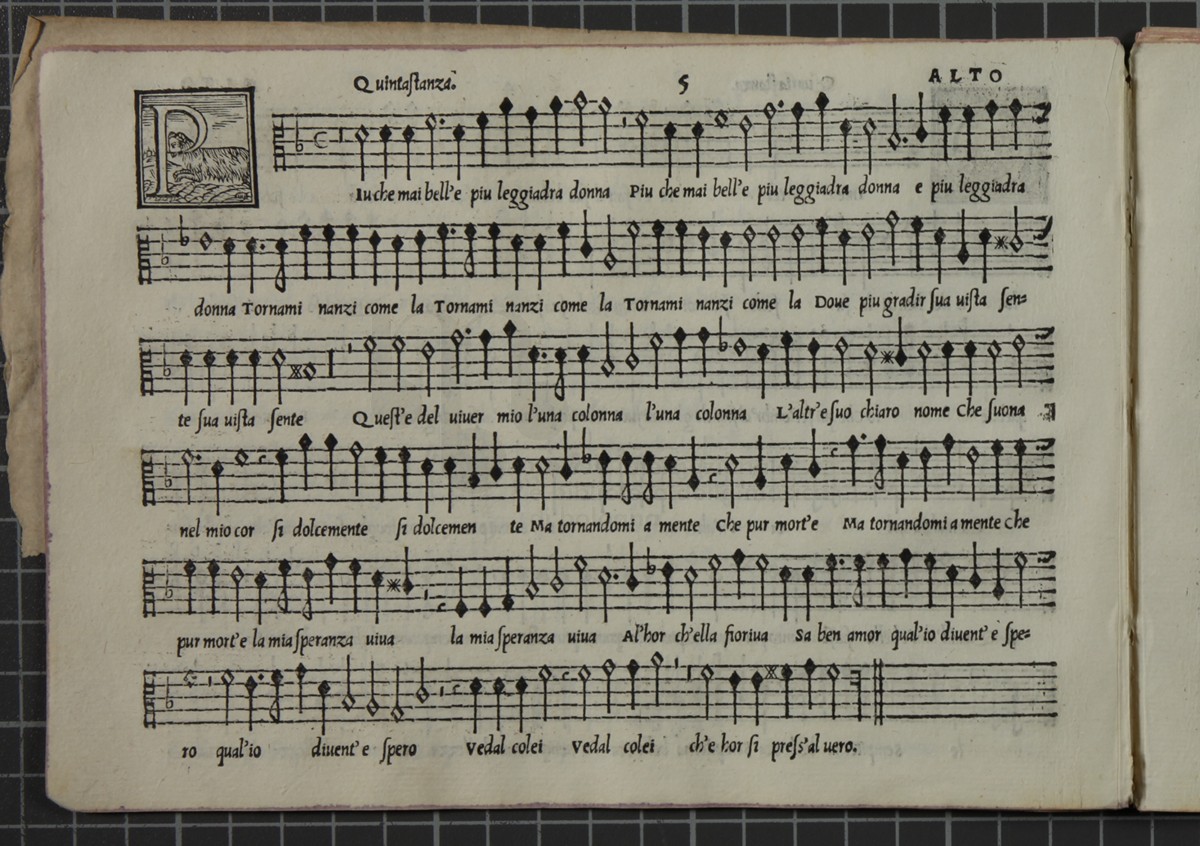 Quintastanza. 5 ALTO
PIu che mai bell'e piu leggiadra donna Piu che mai bell'e piu leggiadra donna e piu leggiadra
donna Tornami nanzi come la Tornami nanzi come la Tornami nanzi come la Doue piu gradir sua uista sen=
te sua uista sente Quest'e del uiuer mio l'una colonna l'una colonna L'altr'e suo chiaro nome Che suona
nel mio cor si dolcemente si dolcemen te Ma tornandomi a mente Che pur mort'e Ma tornandomi a mente Che
pur mort'e la mia speranza uiua la mia speranza uiua Al'hor ch'ella fioriua Sa ben amor qual'io diuent'e spe=
ro qual'io diuent'e spero Vedal colei Vedal colei ch'e hor si press'al uero.